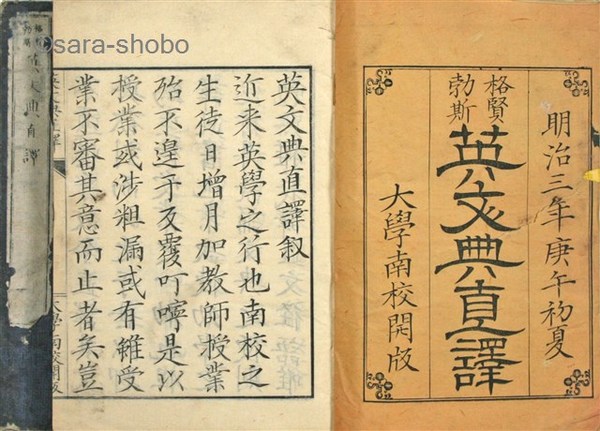 ©sara-shobo
明治三年庚午初夏
格賢
勃斯
英文典直譯
大學南校開版
英文典直譯叙
近来英學之行也南校之
生徒日增月加教師授業
殆不遑于反覆叮嚀是以
授業或渉粗漏或有雖受
業不審其意而止者矣豈
大學南校開版
英文典直譯